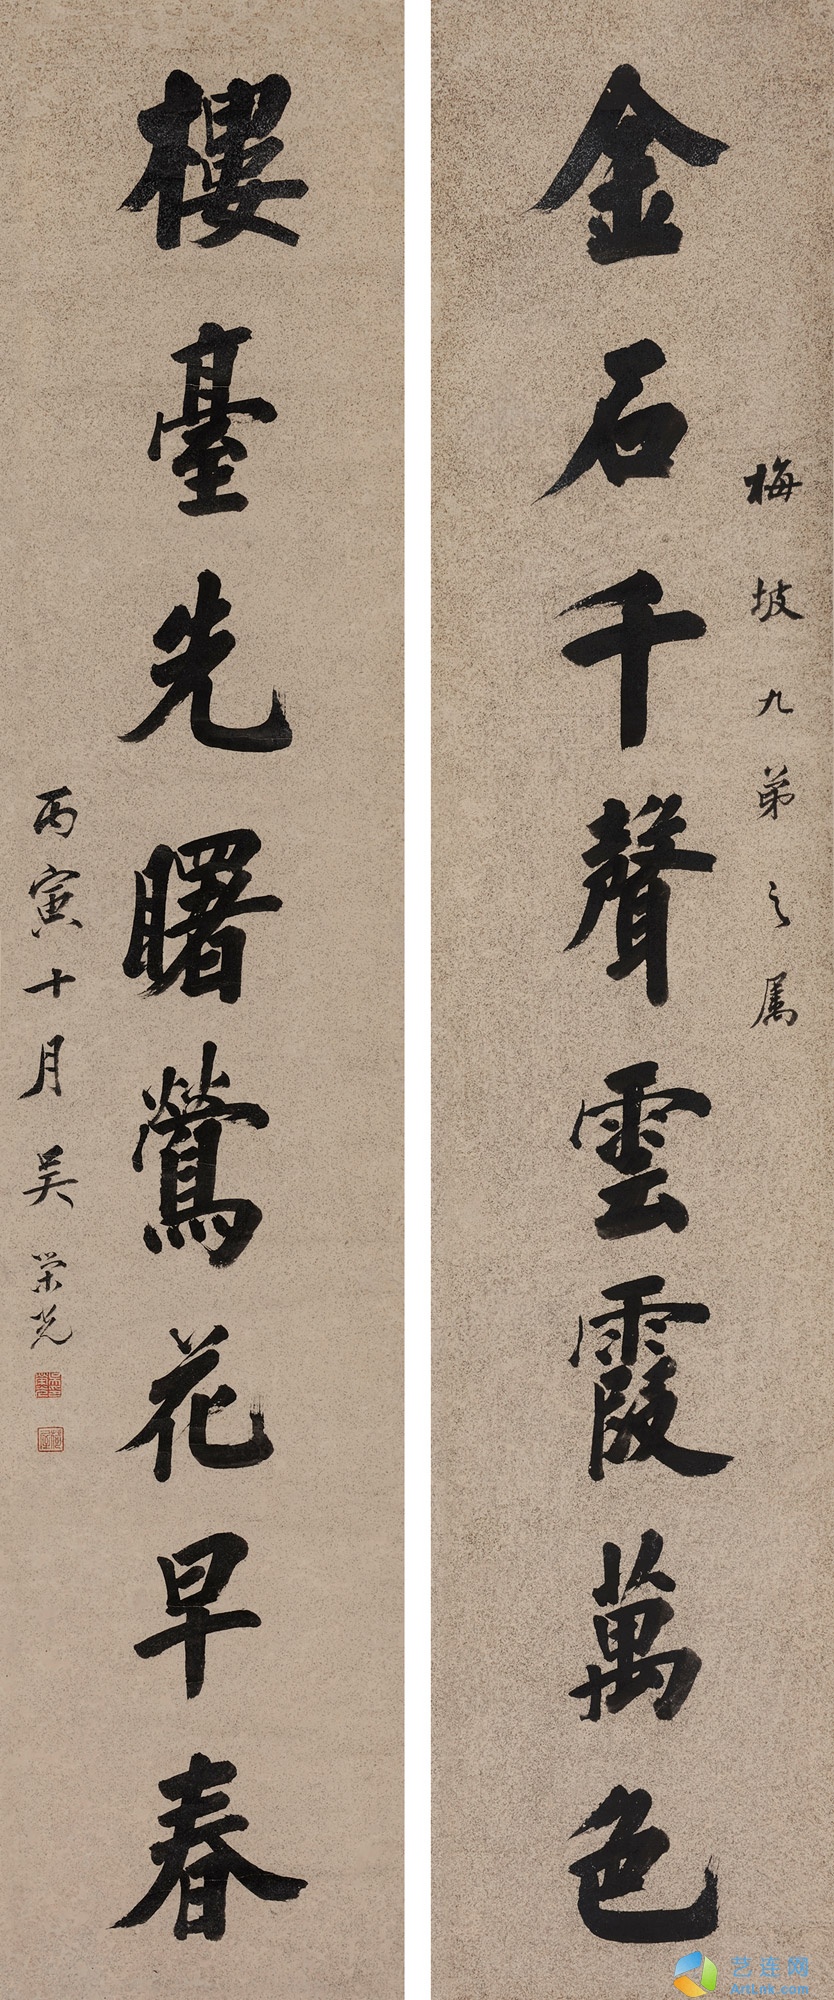 梅坡九弟之属
金石千聲雲霞萬色
樓臺先曙鶯花早春
丙寅十月吴荣光
艺连网
ArtLnk.com